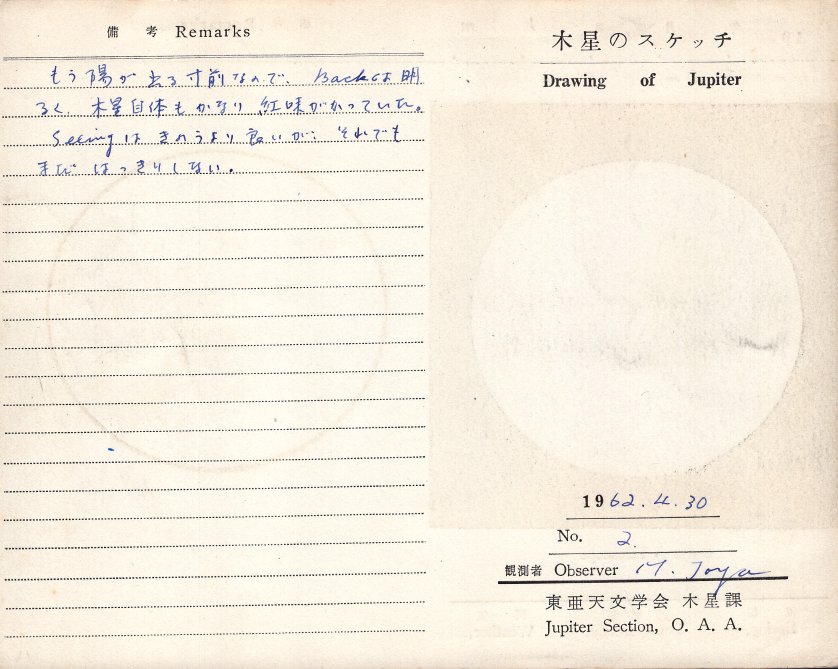 備考 Remarks
もう陽が出る寸前なので、Backは明
るく、木星自体もかなり紅味がかっていた。
Seeingはきのうより良いが、それでも
まだはっきりしない。
木星のスケッチ
Drawing of Jupiter
1962.4.30
No. 2
観測者 Observer M. Toya
東亜天文学会 木星課
Jupiter Section, O. A. A.